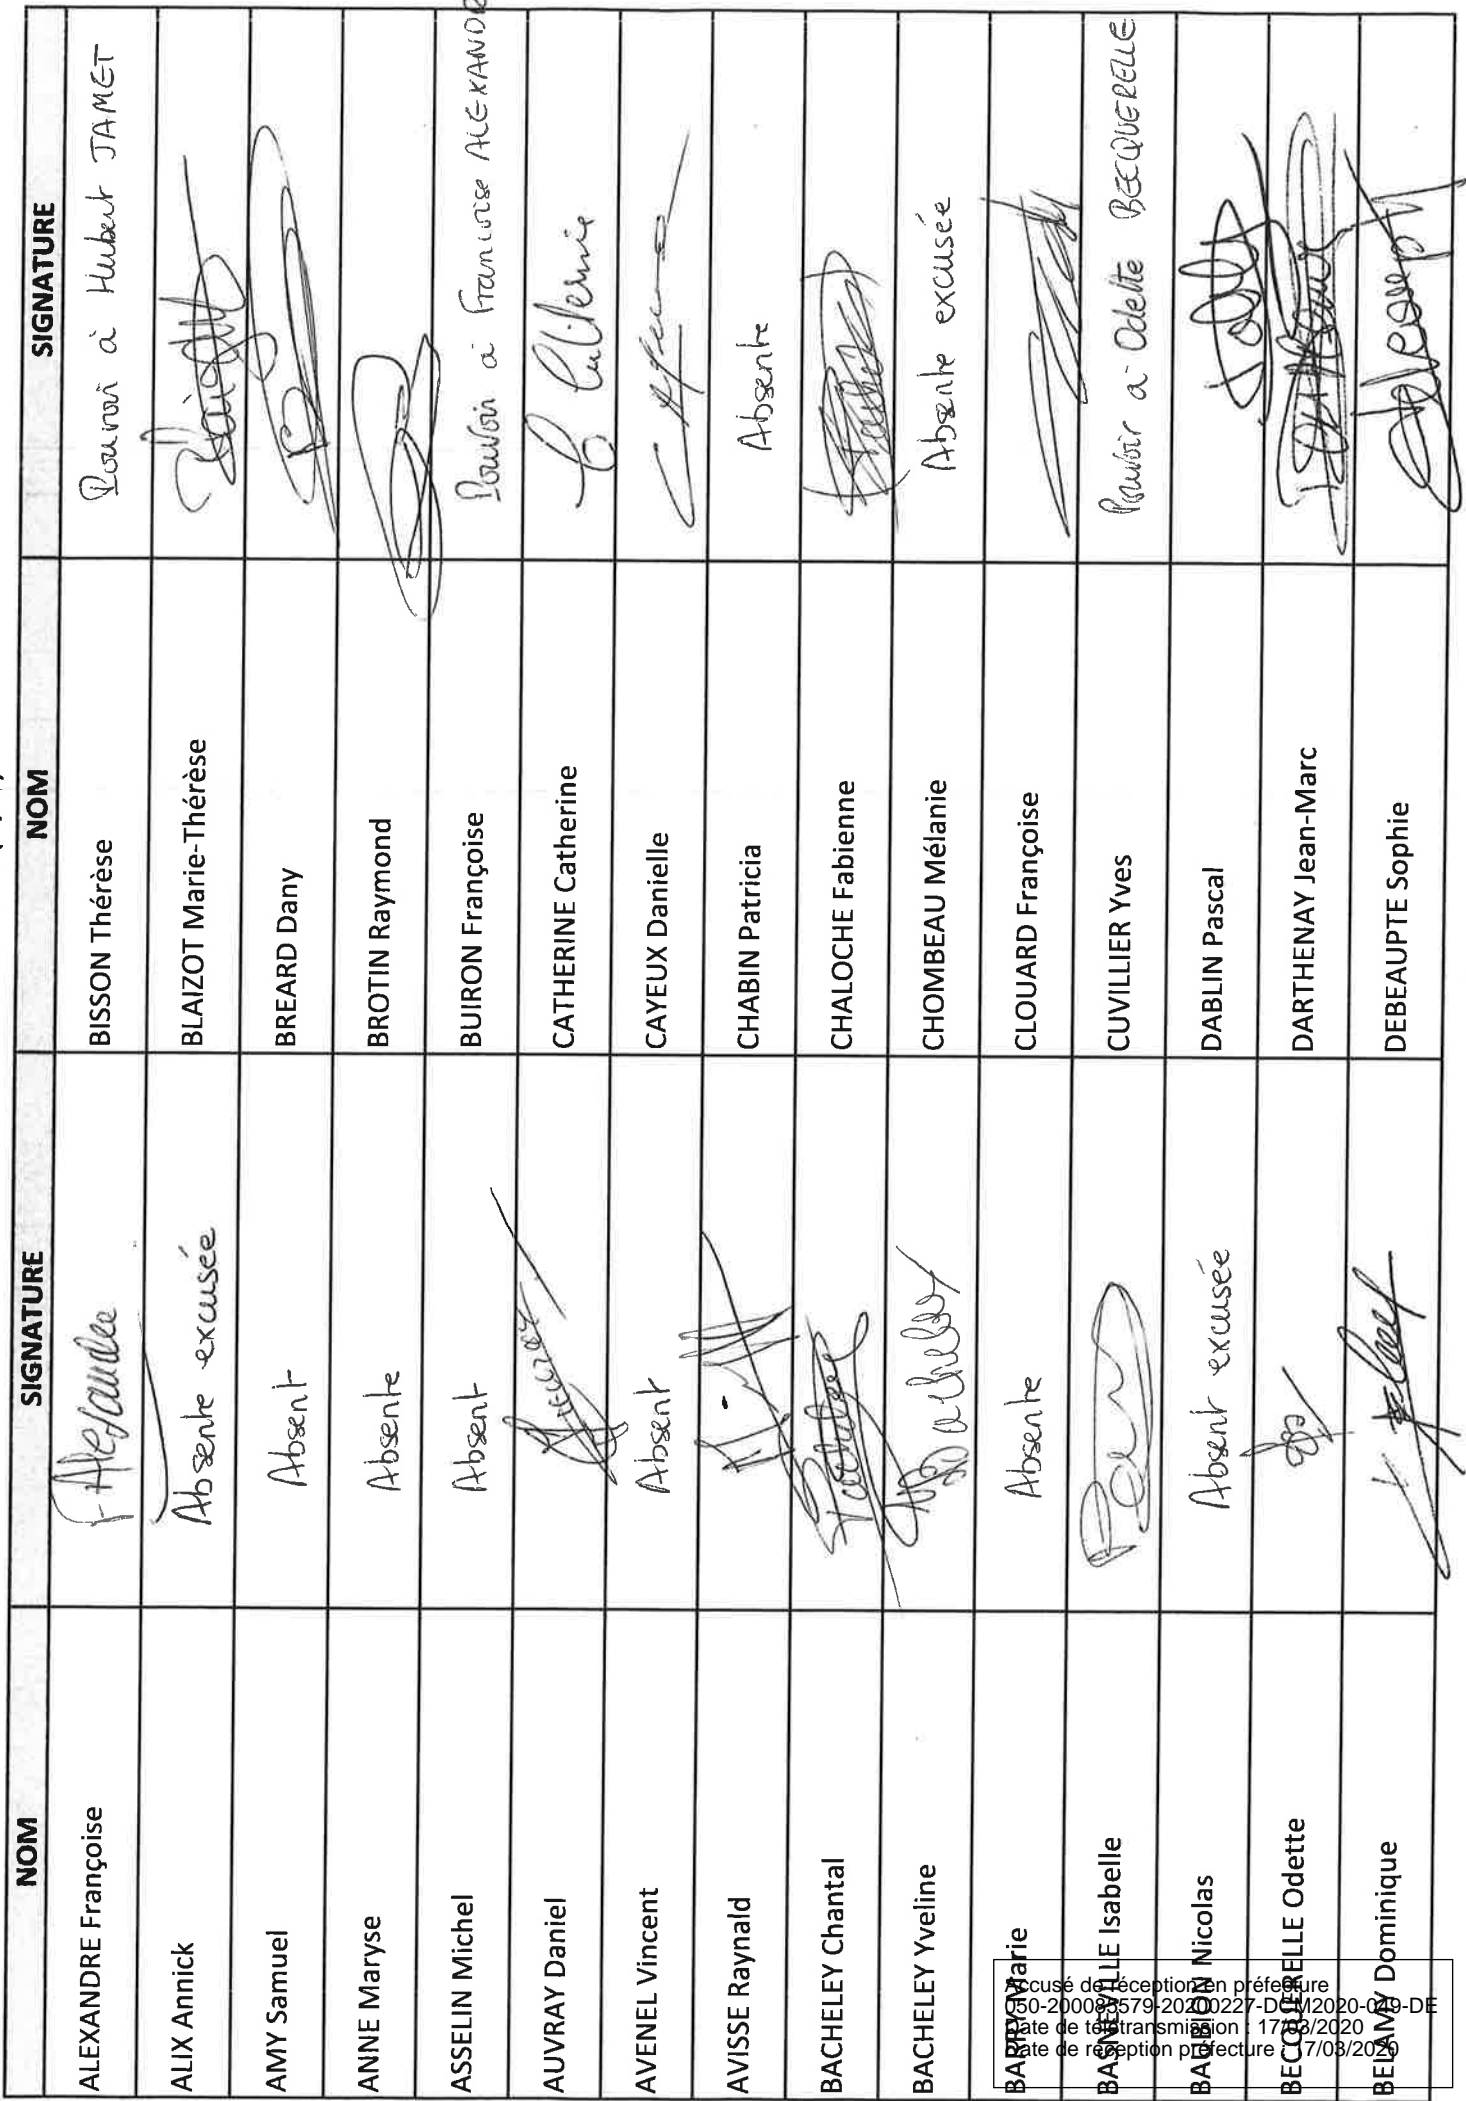 NOM SIGNATURE NOM SIGNATURE
ALEXANDRE Françoise F. Alexandre BISSON Thérèse Pouvoir à Hubert JAMET
ALIX Annick Absente excusée BLAIZOT Marie-Thérèse
AMY Samuel Absent BREARD Dany
ANNE Maryse Absente BROTIN Raymond
ASSELIN Michel Absent BUIRON Françoise Pouvoir à Francoise ALEXANDR
AUVRAY Daniel CATHERINE Catherine C Catherine
AVENEL Vincent Absent CAYEUX Danielle
AVISSE Raynald CHABIN Patricia Absente
BACHELEY Chantal CHALOCHE Fabienne
BACHELEY Yveline CHOMBEAU Mélanie Absente excusée
BARRY Marie Absente CLOUARD Françoise
BASNEVILLE Isabelle CUVILLIER Yves Pouvoir à Odette BECQUERELLE
BAUBION Nicolas Absent excusée DABLIN Pascal
BECQUERELLE Odette DARTHENAY Jean-Marc
BELAMY Dominique DEBEAUPTE Sophie
Accusé de réception en préfecture
050-200085579-20200227-DCM2020-049-DE
Date de télétransmission : 17/03/2020
Date de réception préfecture : 17/03/2020